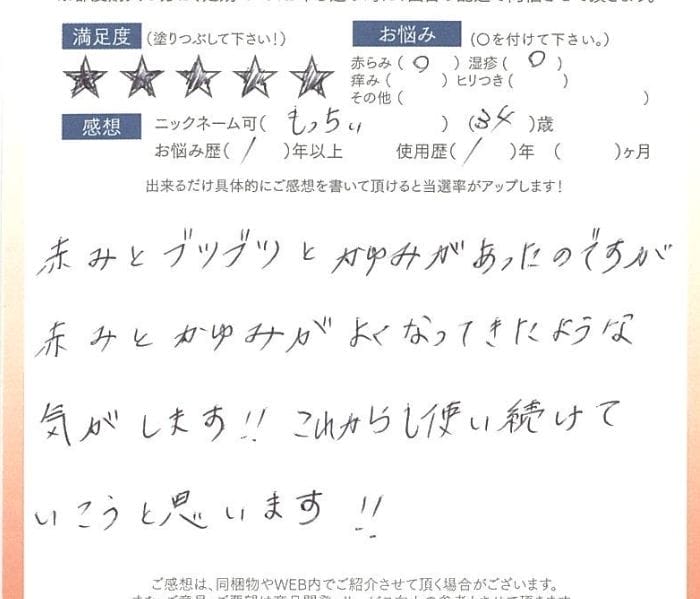 満足度 (塗りつぶして下さい!)
お悩み (〇を付けて下さい。)
赤らみ( 〇 ) 湿疹( 〇 )
痒み( ) ヒリつき( )
その他( )
感想 ニックネーム可( もっちぃ ) (34)歳
お悩み歴( 1 )年以上 使用歴( 1 )年 ( )ヶ月
出来るだけ具体的にご感想を書いて頂けると当選率がアップします!
赤みとブツブツとかゆみがあったのですが
赤みとかゆみがよくなってきたような
気がします!! これからも使い続けて
いこうと思います!!
ご感想は、同梱物やWEB内でご紹介させて頂く場合がございます。